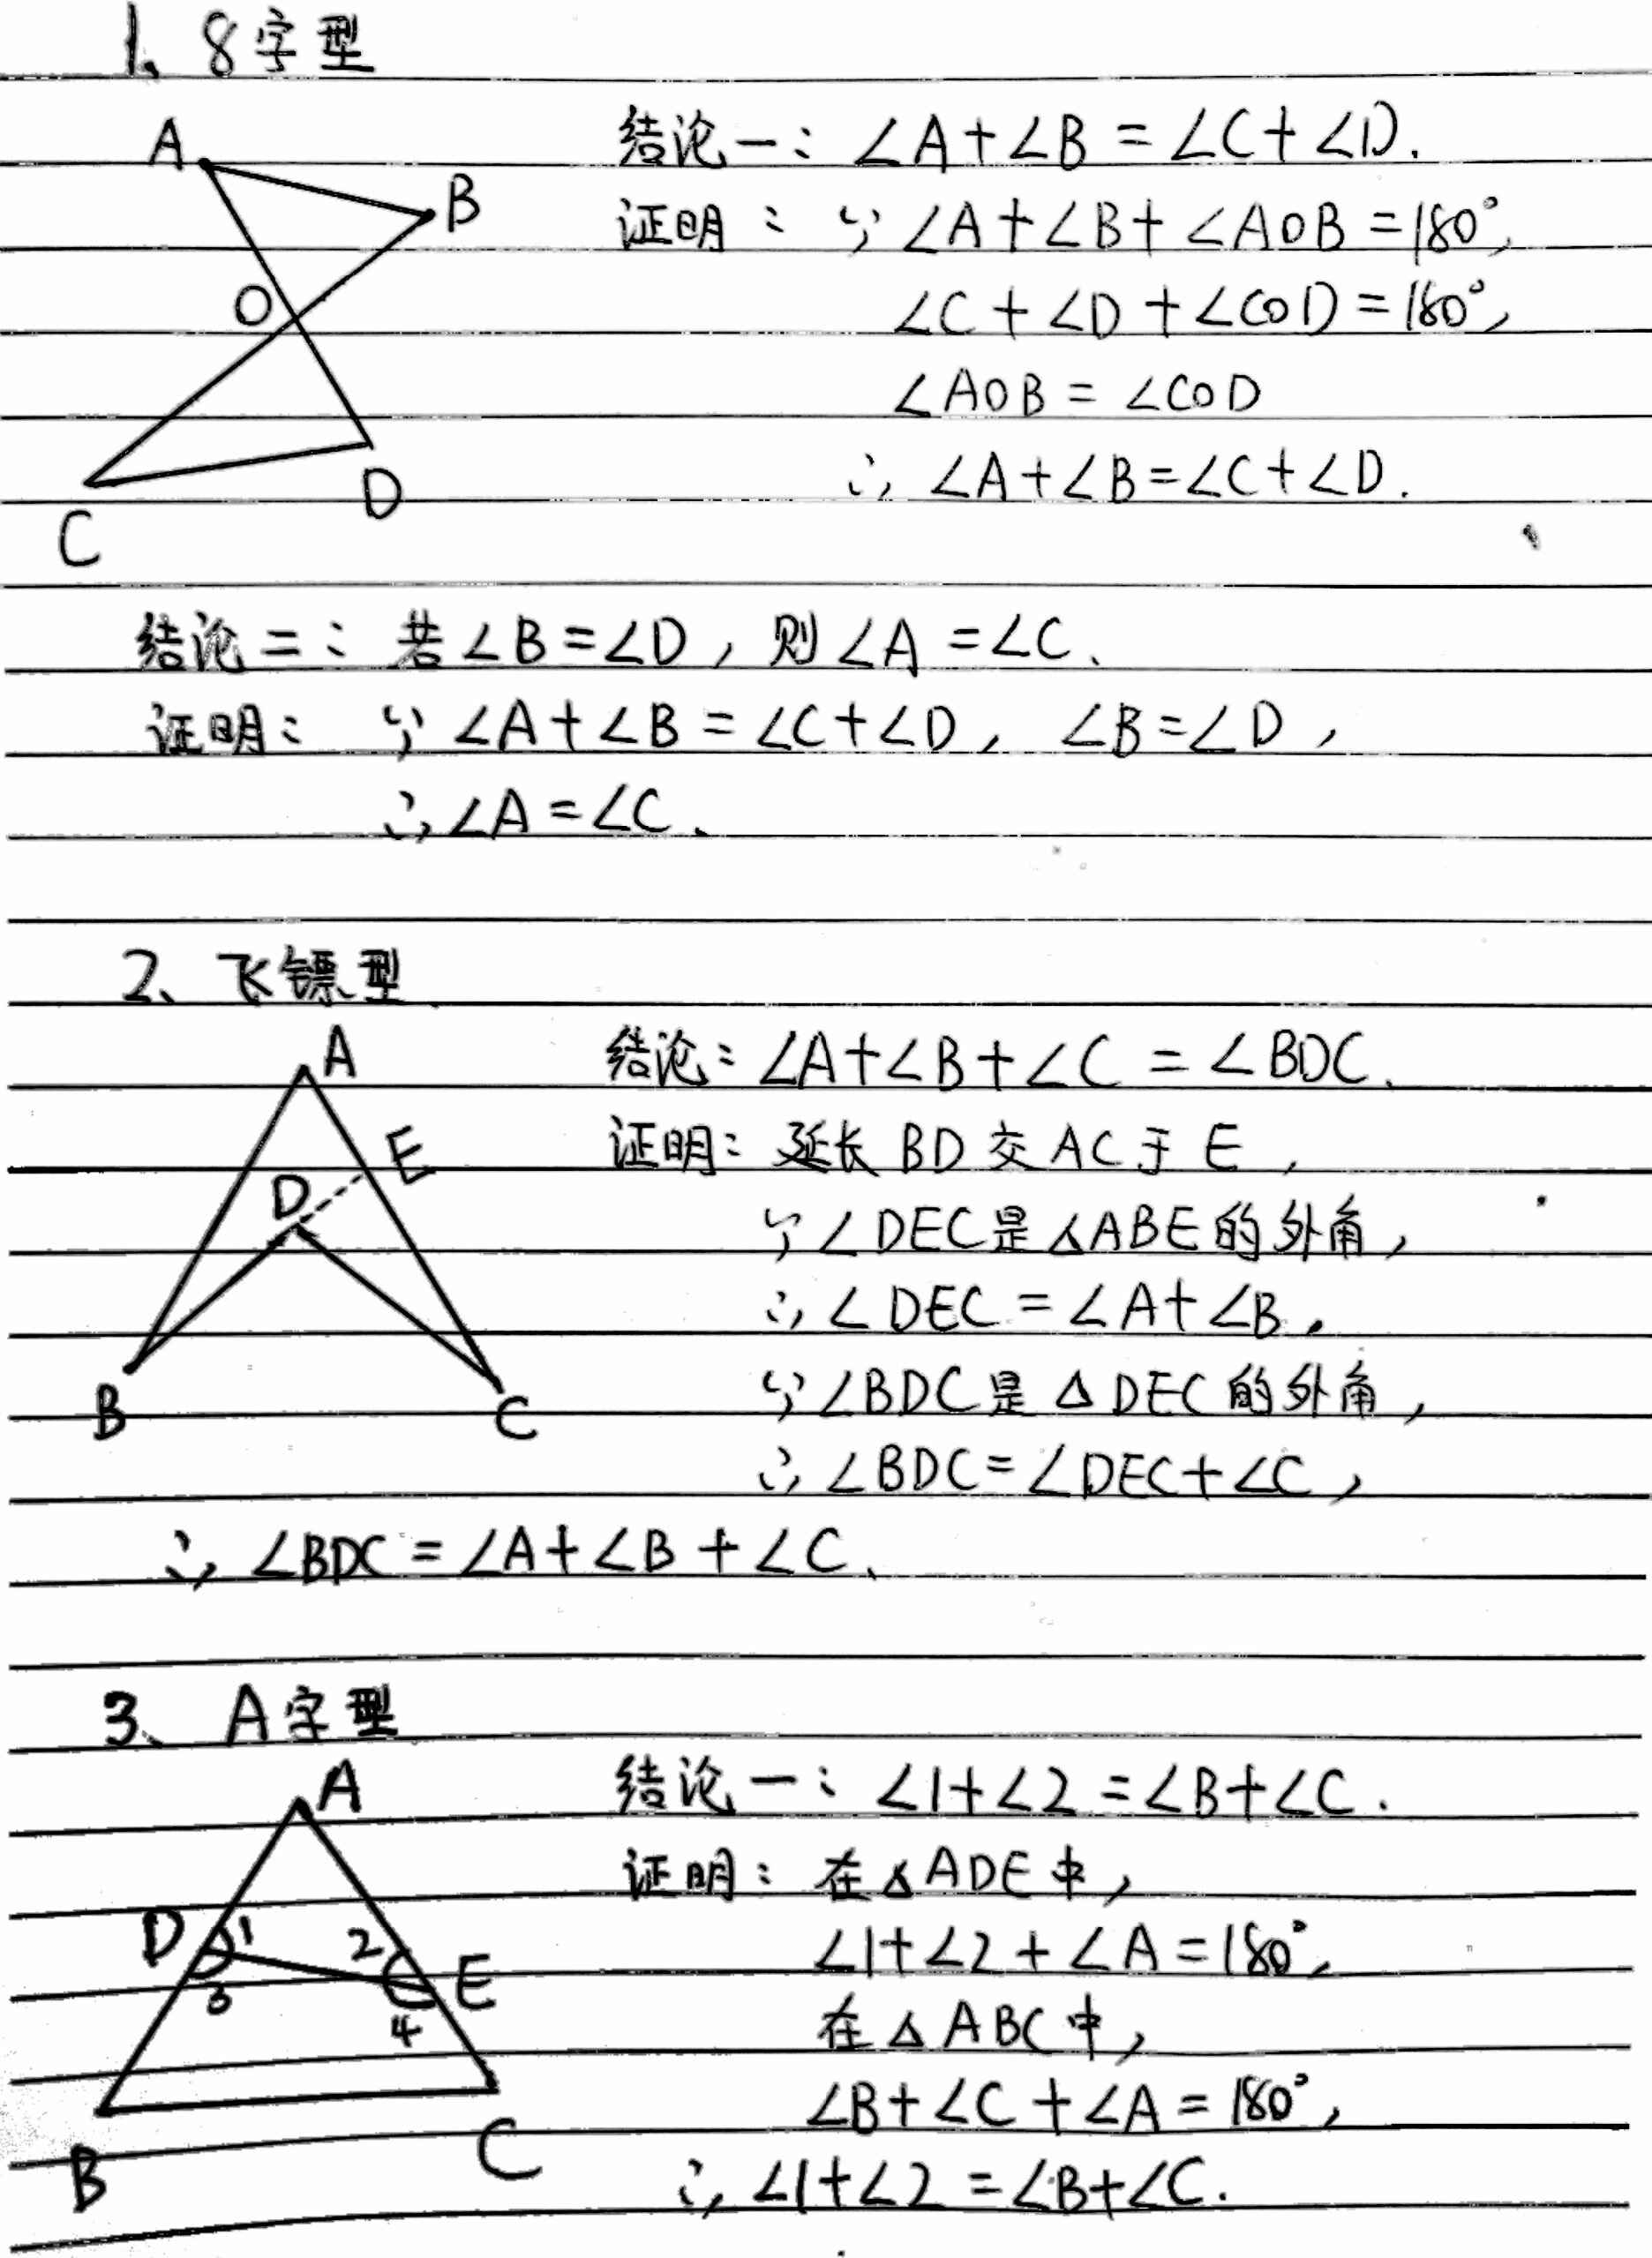 1、8字型
A
B
O
C
D
结论一：∠A+∠B=∠C+∠D.
证明：∵∠A+∠B+∠AOB=180°,
∠C+∠D+∠COD=180°,
∠AOB=∠COD
∴∠A+∠B=∠C+∠D.
结论二：若∠B=∠D，则∠A=∠C、
证明：∵∠A+∠B=∠C+∠D，∠B=∠D，
∴∠A=∠C、
2、飞镖型
A
E
D
B
C
结论：∠A+∠B+∠C=∠BDC、
证明：延长BD交AC于E，
∵∠DEC是△ABE的外角，
∴∠DEC=∠A+∠B.
∵∠BDC是△DEC的外角，
∴∠BDC=∠DEC+∠C，
∴∠BDC=∠A+∠B+∠C、
3、A字型
A
D 1
2 E
3
4
B
C
结论一：∠1+∠2=∠B+∠C.
证明：在△ADE中，
∠1+∠2+∠A=180°,
在△ABC中，
∠B+∠C+∠A=180°,
∴∠1+∠2=∠B+∠C.